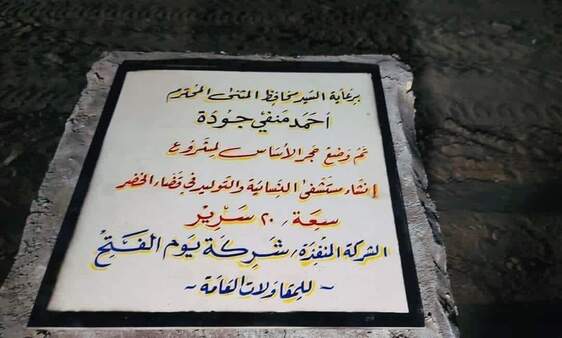 برعاية السيد محافظ المثنى المحترم
احمد منفي جودة
تم وضع حجر الأساس لمشروع
إنشاء مستشفى النسائية والتوليد في قضاء الخضر
سعة ٢٠ سرير
الشركة المنفذة/ شركة يوم الفتح
~ للمقاولات العامة ~